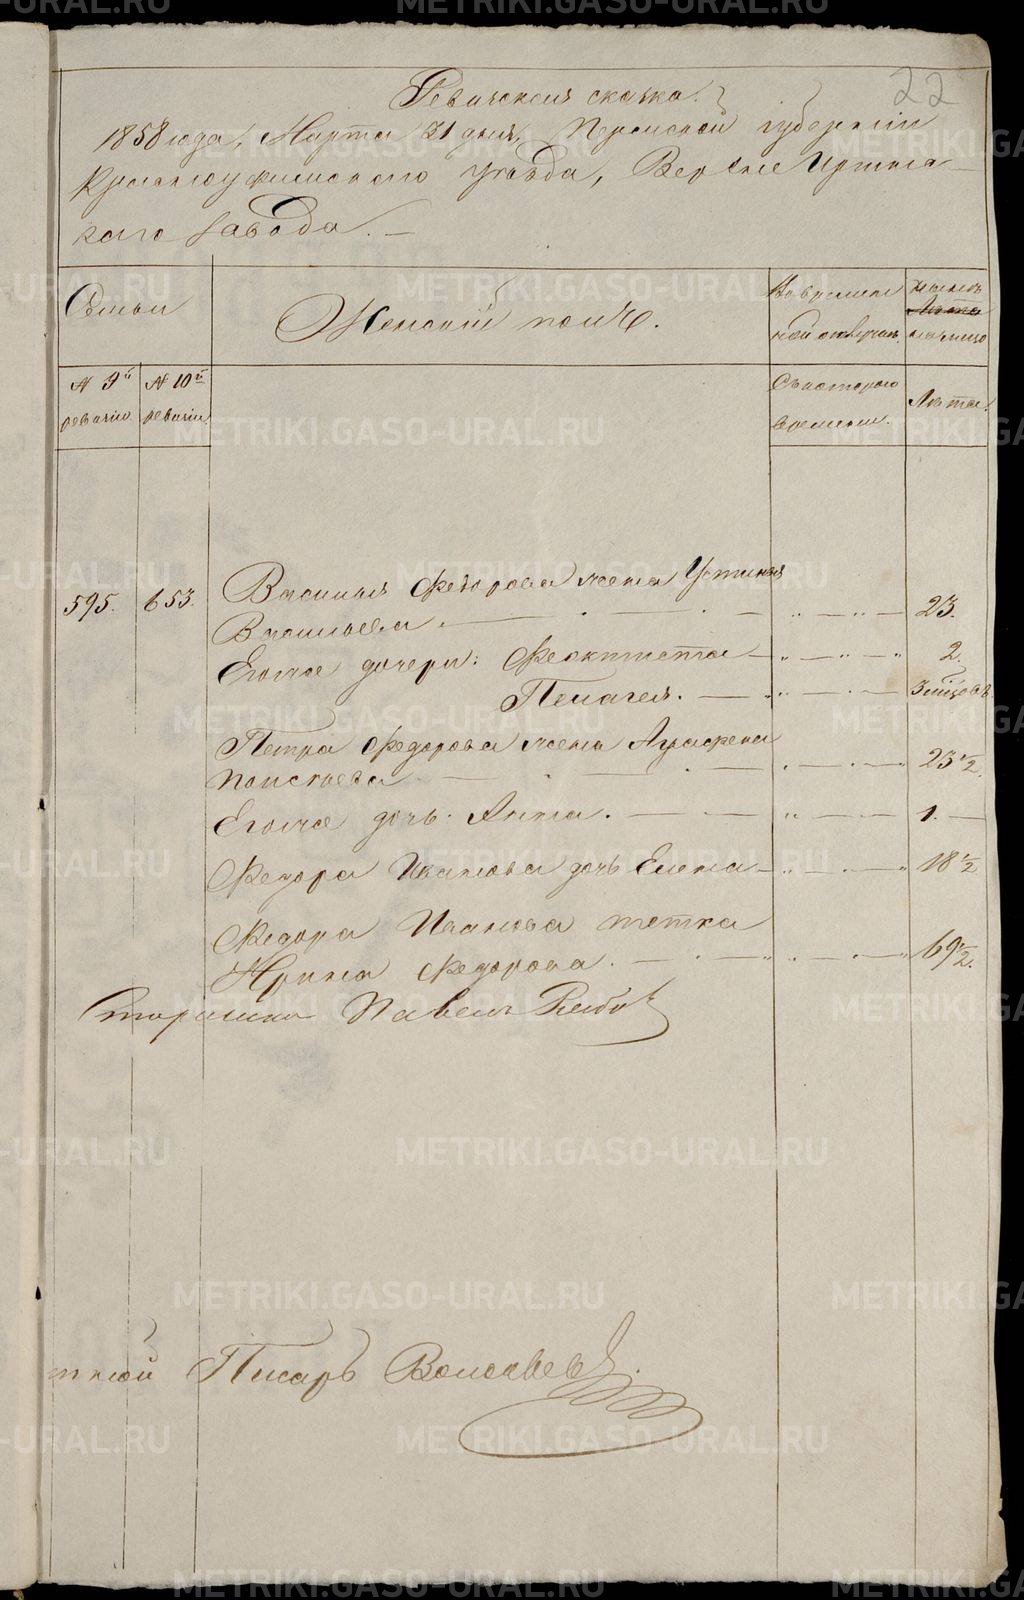 22
Ревизская сказка.
1858 года, Марта 31 дня, Пермской губернии
Красноуфимского уѣзда, Верхне Иргин-
скаго завода.
Семьи
Женский полъ.
Во времен-
ной отлучкѣ.
нынѣ
Лѣта
на лицо
№ 9й
ревизiи.
№ 10й
ревизiи.
Съ котораго
времени.
Лѣта.
595.
653.
Василья Федорова жена Устинья
Васильева.
23.
Егоже дочери: Феоктиста
2.
Пелагея.
3 мѣсѣцовъ
Петра Федорова жена Аграфена
23 1/2.
Егоже дочь. Анна.
1.
Федора Иванова дочь Елена
18 1/2
Федора Иванова тетка
Ирина Федорова.
69 1/2.
Старшина Павелъ
тной Писарь
METRIKI.GASO-URAL.RU